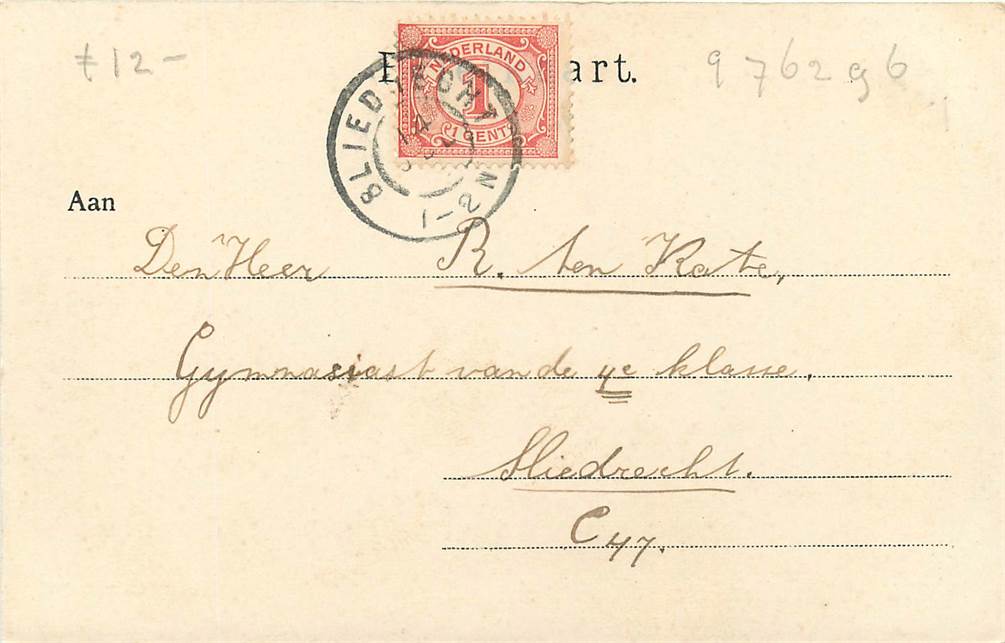 f 12 -
art.
9 762 96
NEDERLAND
1
1 CENT
SLIEDRECHT
1-2N
Aan
Den Heer R. ten Kate,
Gymnasiast van de 4e klasse,
Sliedrecht.
C 47.